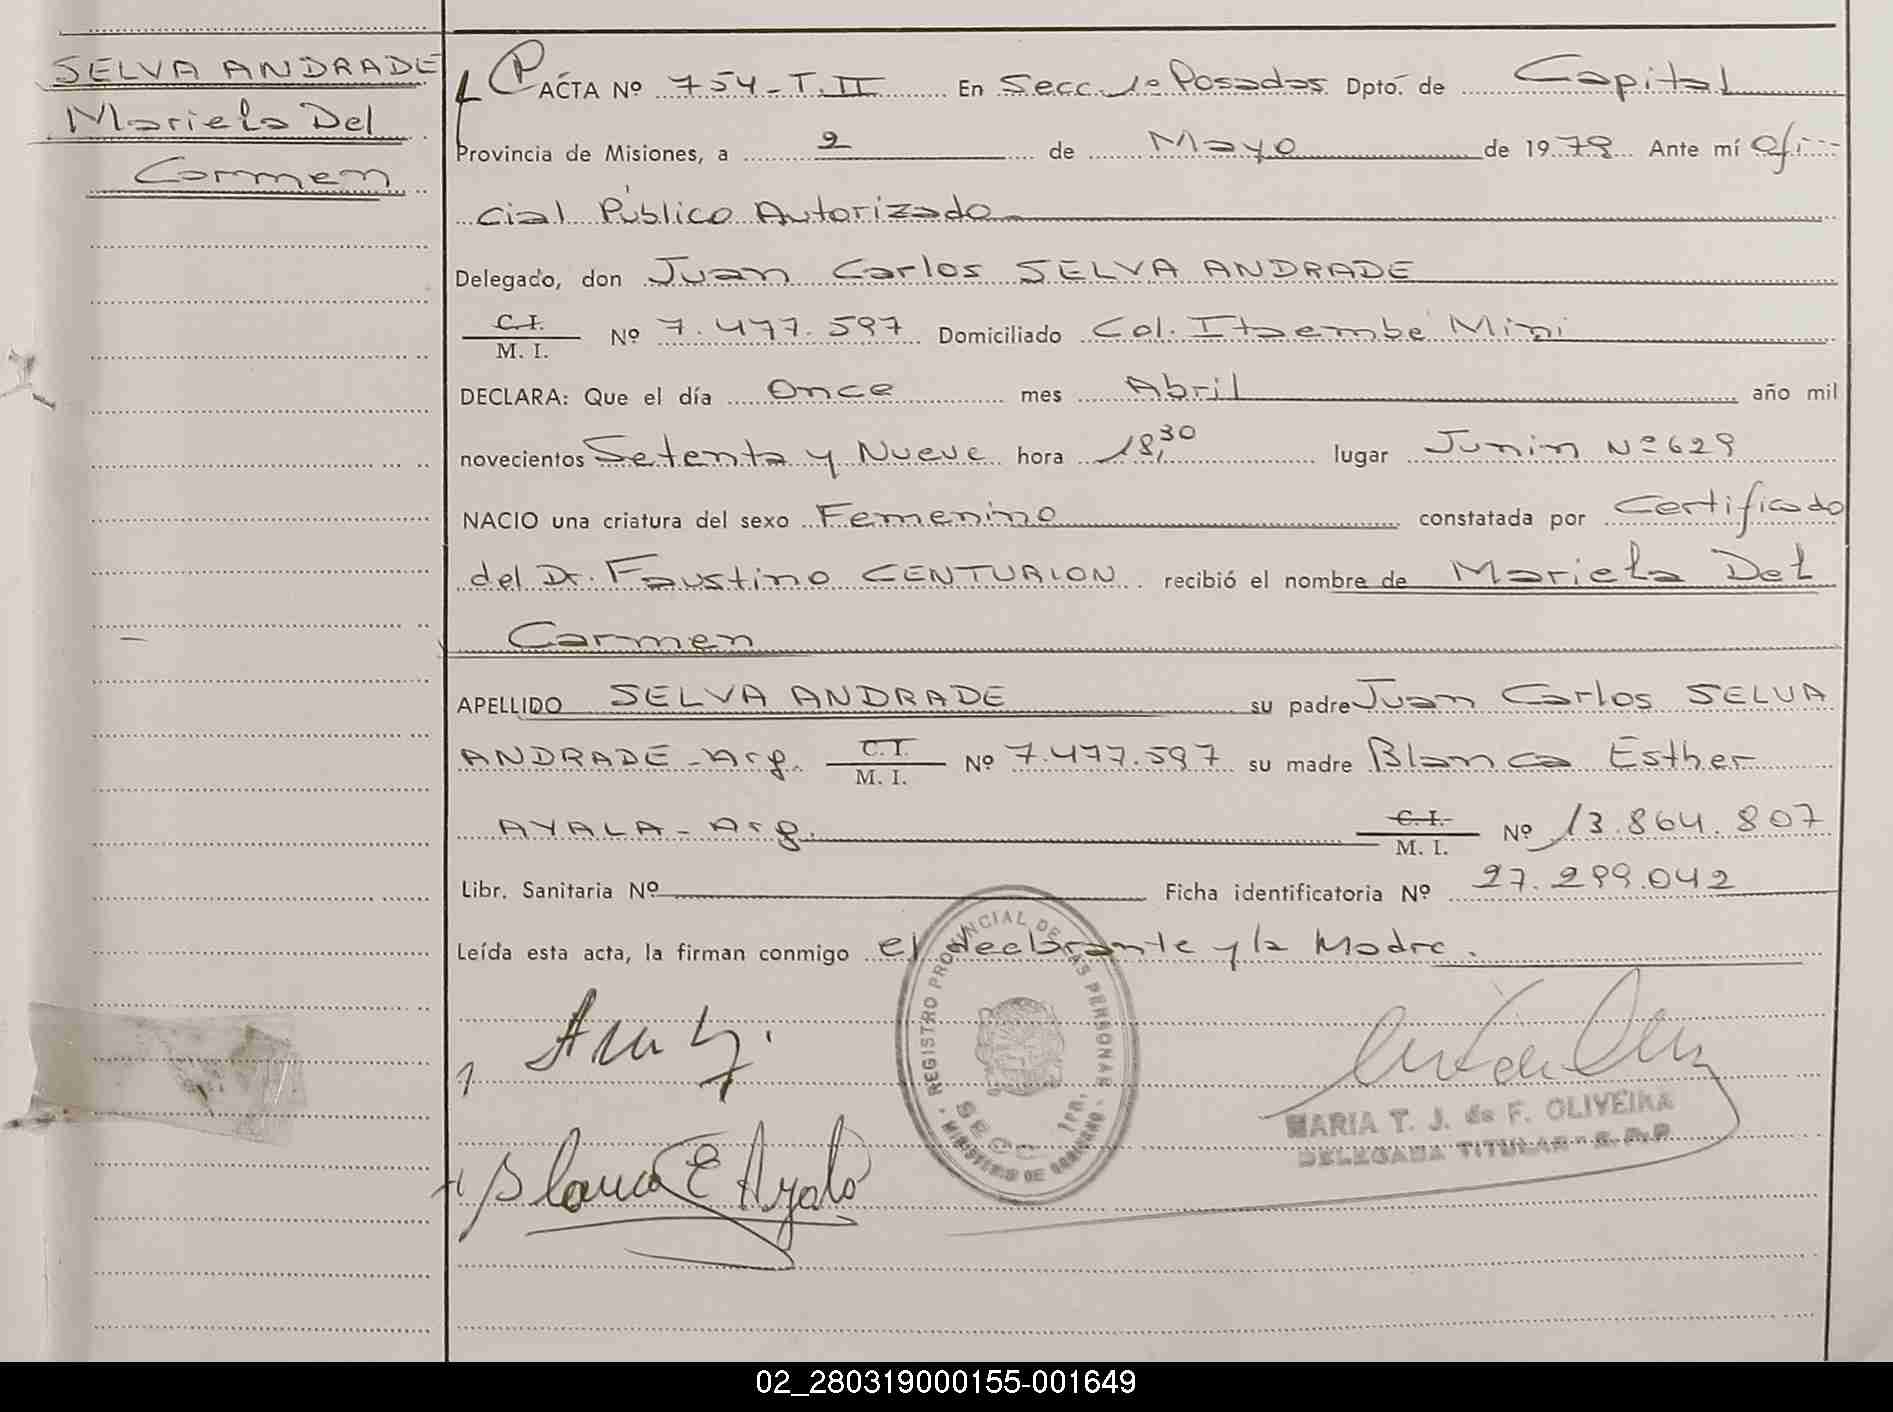 SELVA ANDRADE
Mariela Del
Carmen
ACTA Nº 754-T.II En Secc. 1º Posadas Dpto. de Capital
Provincia de Misiones, a 2 de Mayo de 1979 Ante mí Ofi-
cial Público Autorizado
Delegado, don Juan Carlos SELVA ANDRADE
C.I.
M. I. Nº 7.477.597 Domiciliado Col. Itaembé Mini
DECLARA: Que el día Once mes Abril año mil
novecientos Setenta y Nueve hora 18,30 lugar Junin Nº 629
NACIO una criatura del sexo Femenino constatada por Certificado
del Dr. Faustino CENTURION recibió el nombre de Mariela Del
Carmen
APELLIDO SELVA ANDRADE su padre Juan Carlos SELVA
ANDRADE - Arg. C.I. M. I. Nº 7.477.597 su madre Blanca Esther
AYALA - Arg. C.I. M. I. Nº 13.864.807
Libr. Sanitaria Nº Ficha identificatoria Nº 27.299.042
Leída esta acta, la firman conmigo el declarante y la Madre.
REGISTRO PROVINCIAL DE LAS PERSONAS
SECC. 1ra.
MINISTERIO DE GOBIERNO
MARIA T. J. de F. OLIVEIRA
DELEGADA TITULAR - R. P. P.
Blanca E Ayala
02_280319000155-001649